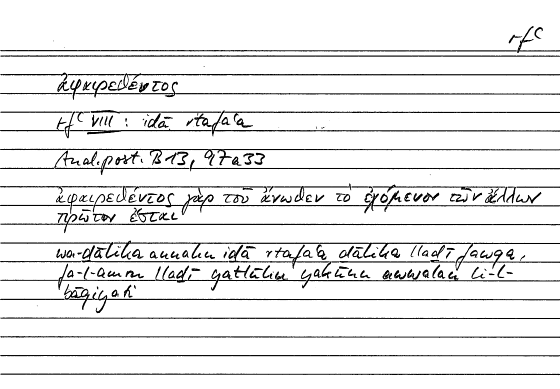 rfᶜ
ἀφαιρεθέντος
rfᶜ VIII : idā rtafaʿa
Anal. post. B 13, 97a33
ἀφαιρεθέντος γὰρ τοῦ ἄνωθεν τὸ ἐχόμενον τῶν ἄλλων
πρῶτον ἔσται
wa-dālika annahu idā rtafaʿa dālika lladī fawqa,
fa-l-amru lladī yatlūhu yakūnu awwalan li-l-
bāqiyati